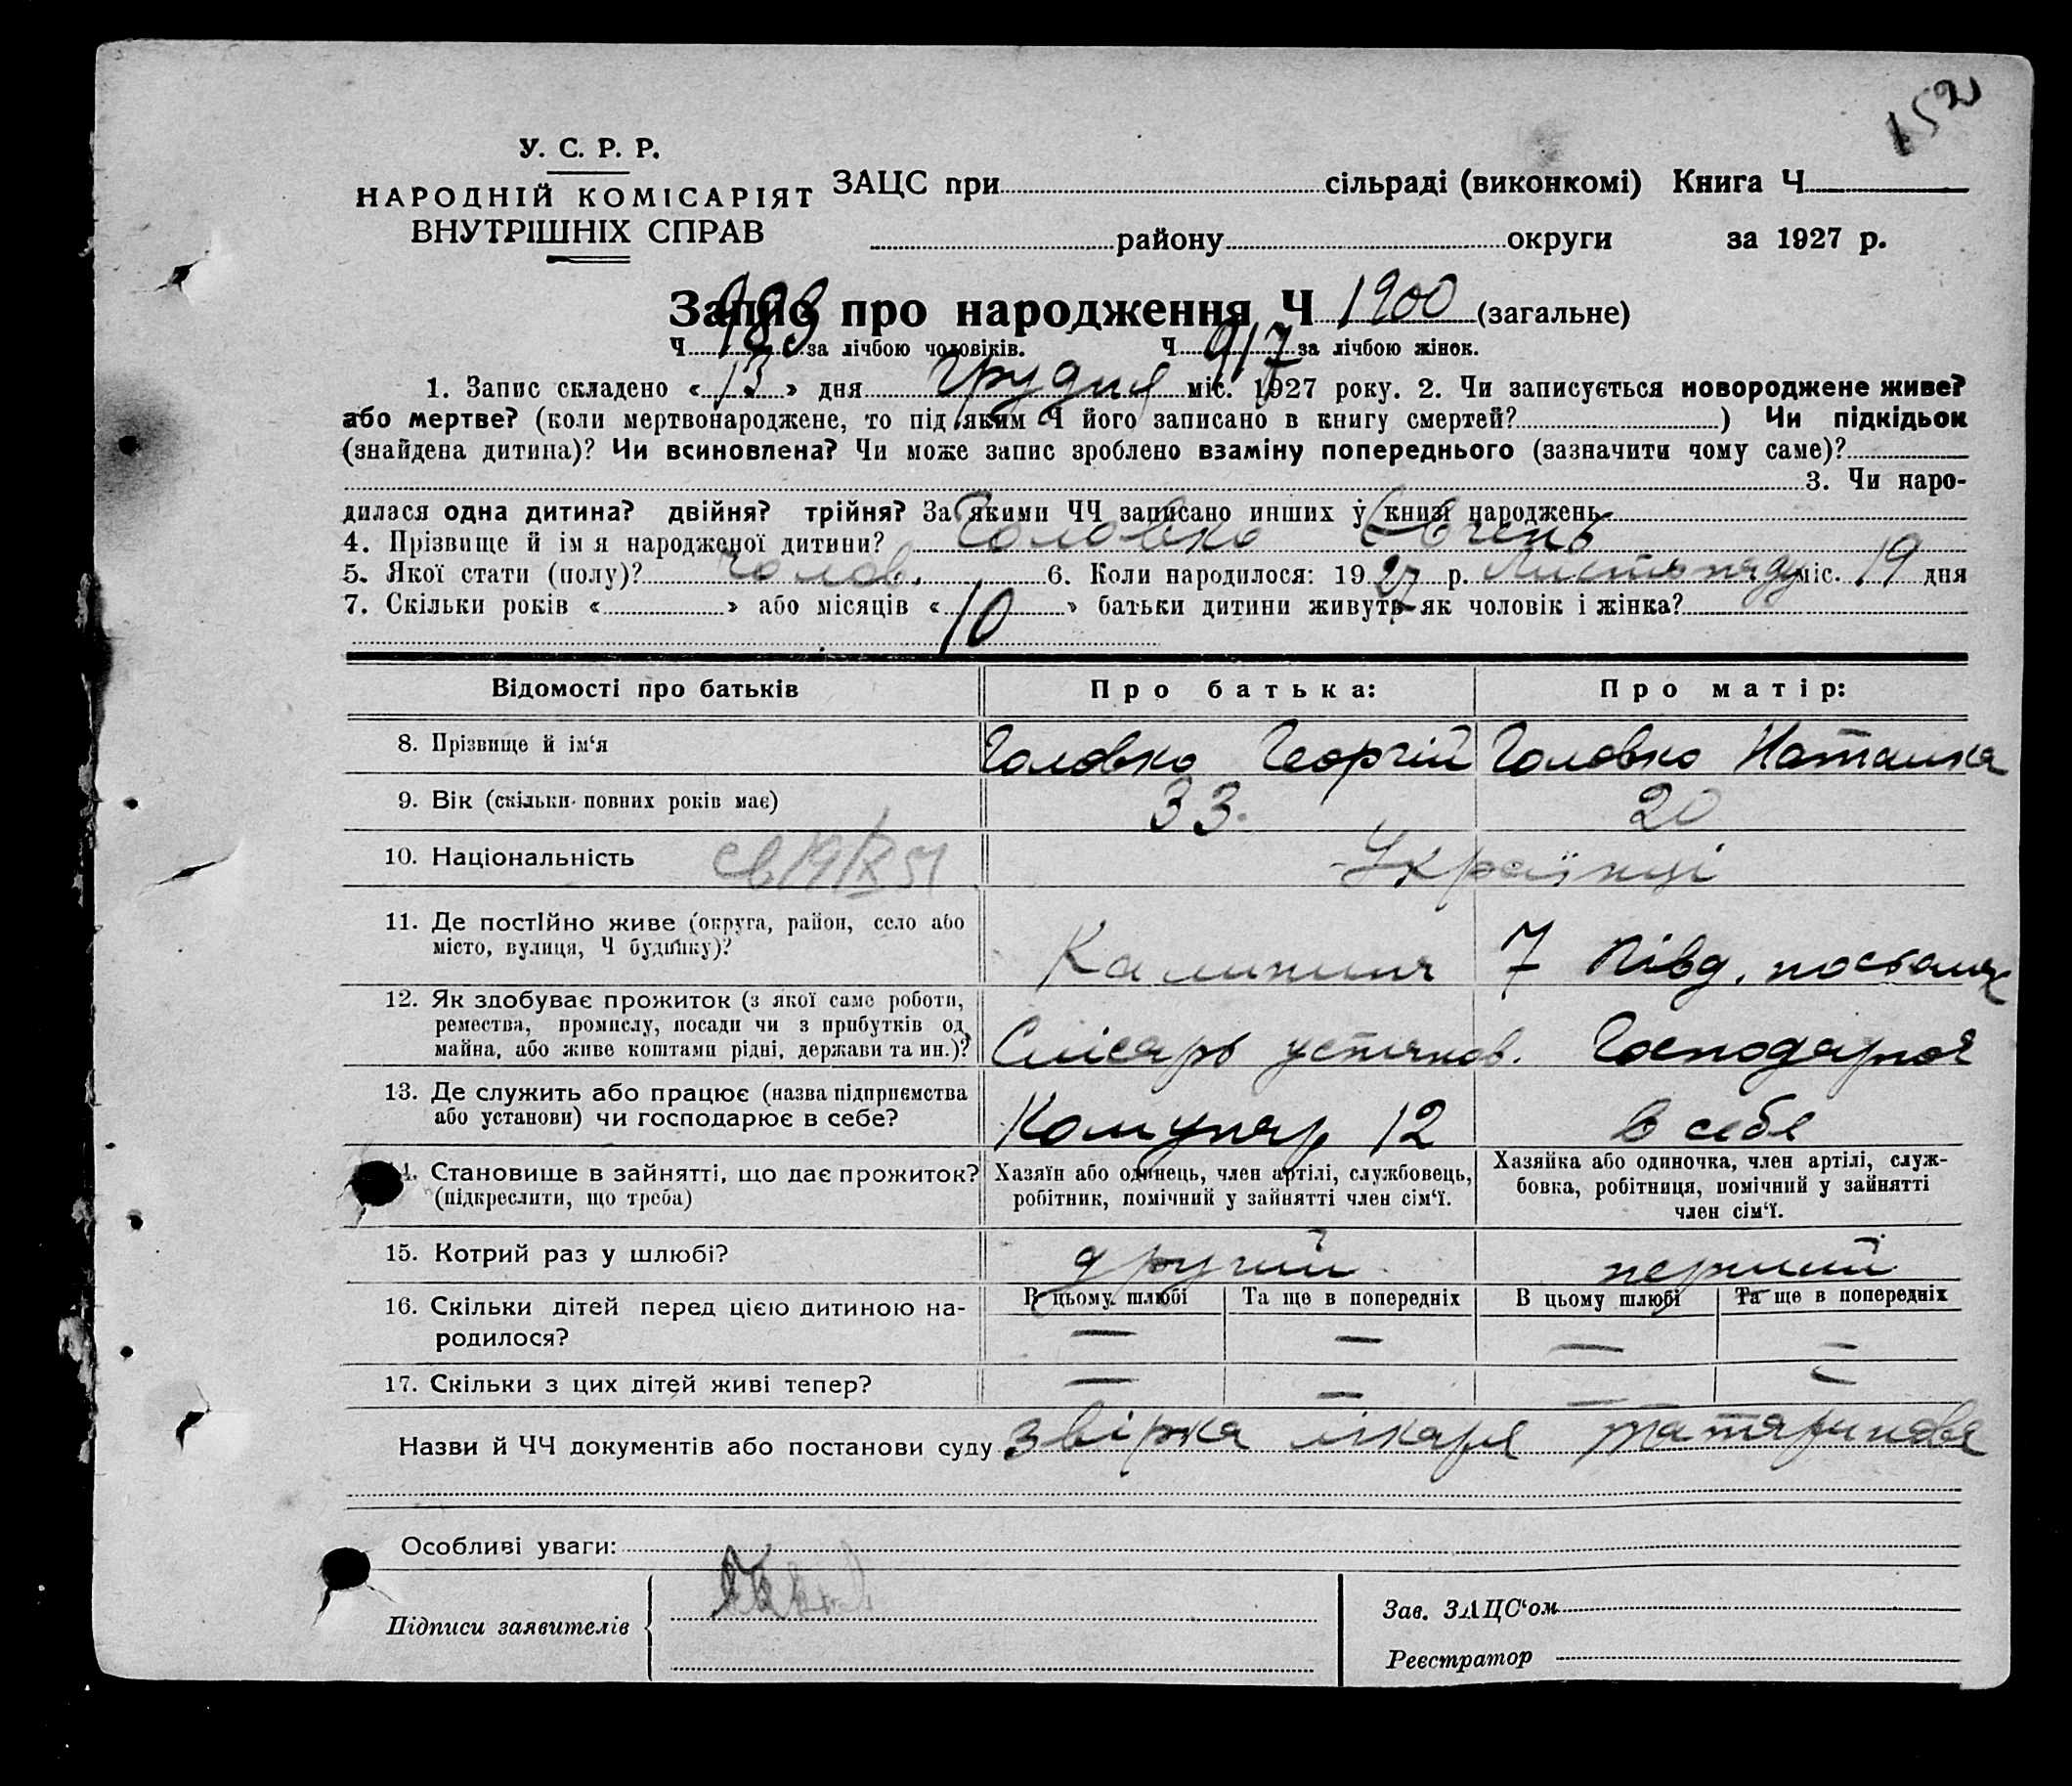 152
У. С. Р. Р.
НАРОДНІЙ КОМІСАРІЯТ
ВНУТРІШНІХ СПРАВ
ЗАЦС при сільраді (виконкомі) Книга Ч
району округи за 1927 р.
Запис про народження Ч 1900 (загальне)
Ч 983 за лічбою чоловіків. Ч 917 за лічбою жінок.
1. Запис складено « 13 » дня Грудня міс. 1927 року. 2. Чи записується новороджене живе?
або мертве? (коли мертвонароджене, то під яким Ч його записано в книгу смертей? ) Чи підкідьок
(знайдена дитина)? Чи всиновлена? Чи може запис зроблено взаміну попереднього (зазначити чому саме)?
3. Чи наро-
дилася одна дитина? двійня? трійня? За якими ЧЧ записано инших у книзі народжень
4. Прізвище й ім я народженої дитини? Головко Євгень
5. Якої стати (полу)? чолов. 6. Коли народилося: 1927 р. Листопаду міс. 19 дня
7. Скільки років « » або місяців « 10 » батьки дитини живуть як чоловік і жінка?
Відомості про батьків Про батька: Про матір:
8. Прізвище й ім‘я Головко Георгій Головко Наталка
9. Вік (скільки повних років має) 33. 20
10. Національність Українці
11. Де постійно живе (округа, район, село або
місто, вулиця, Ч будинку)? Калинина 7 Півд. поселок
12. Як здобуває прожиток (з якої саме роботи,
ремества, промислу, посади чи з прибутків од
майна, або живе коштами рідні, держави та ин.)? Слісарь установ. Господарка
13. Де служить або працює (назва підприємства
або установи) чи господарює в себе? Комунар 12 в себе
14. Становище в зайнятті, що дає прожиток?
(підкреслити, що треба)
Хазяїн або одинець, член артілі, службовець,
робітник, помічний у зайнятті член сім‘ї.
Хазяйка або одиночка, член артілі, служ-
бовка, робітниця, помічний у зайнятті
член сім‘ї.
15. Котрий раз у шлюбі? другий перший
16. Скільки дітей перед цією дитиною на-
родилося?
В цьому шлюбі Та ще в попередніх В цьому шлюбі Та ще в попередніх
— — — —
17. Скільки з цих дітей живі тепер? — — — —
Назви й ЧЧ документів або постанови суду Звірка лікаря Татаринова
Особливі уваги:
Підписи заявителів
Зав. ЗАЦС‘ом
Реєстратор